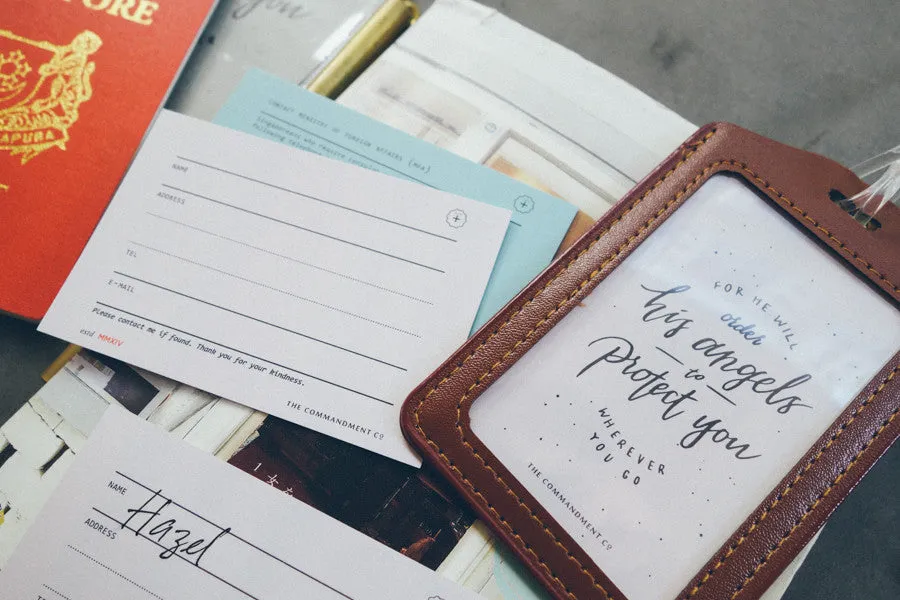 PORE
APURA
you
CONTACT MINISTRY OF FOREIGN AFFAIRS (MFA)
Singaporeans who require consular
following
NAME
ADDRESS
TEL
E-MAIL
Please contact me if found. Thank you for your kindness.
estd MMXIV
THE COMMANDMENT CO
NAME
Hazel
ADDRESS
FOR HE WILL
order
his angels
to
protect you
WHEREVER
YOU GO
THE COMMANDMENT CO